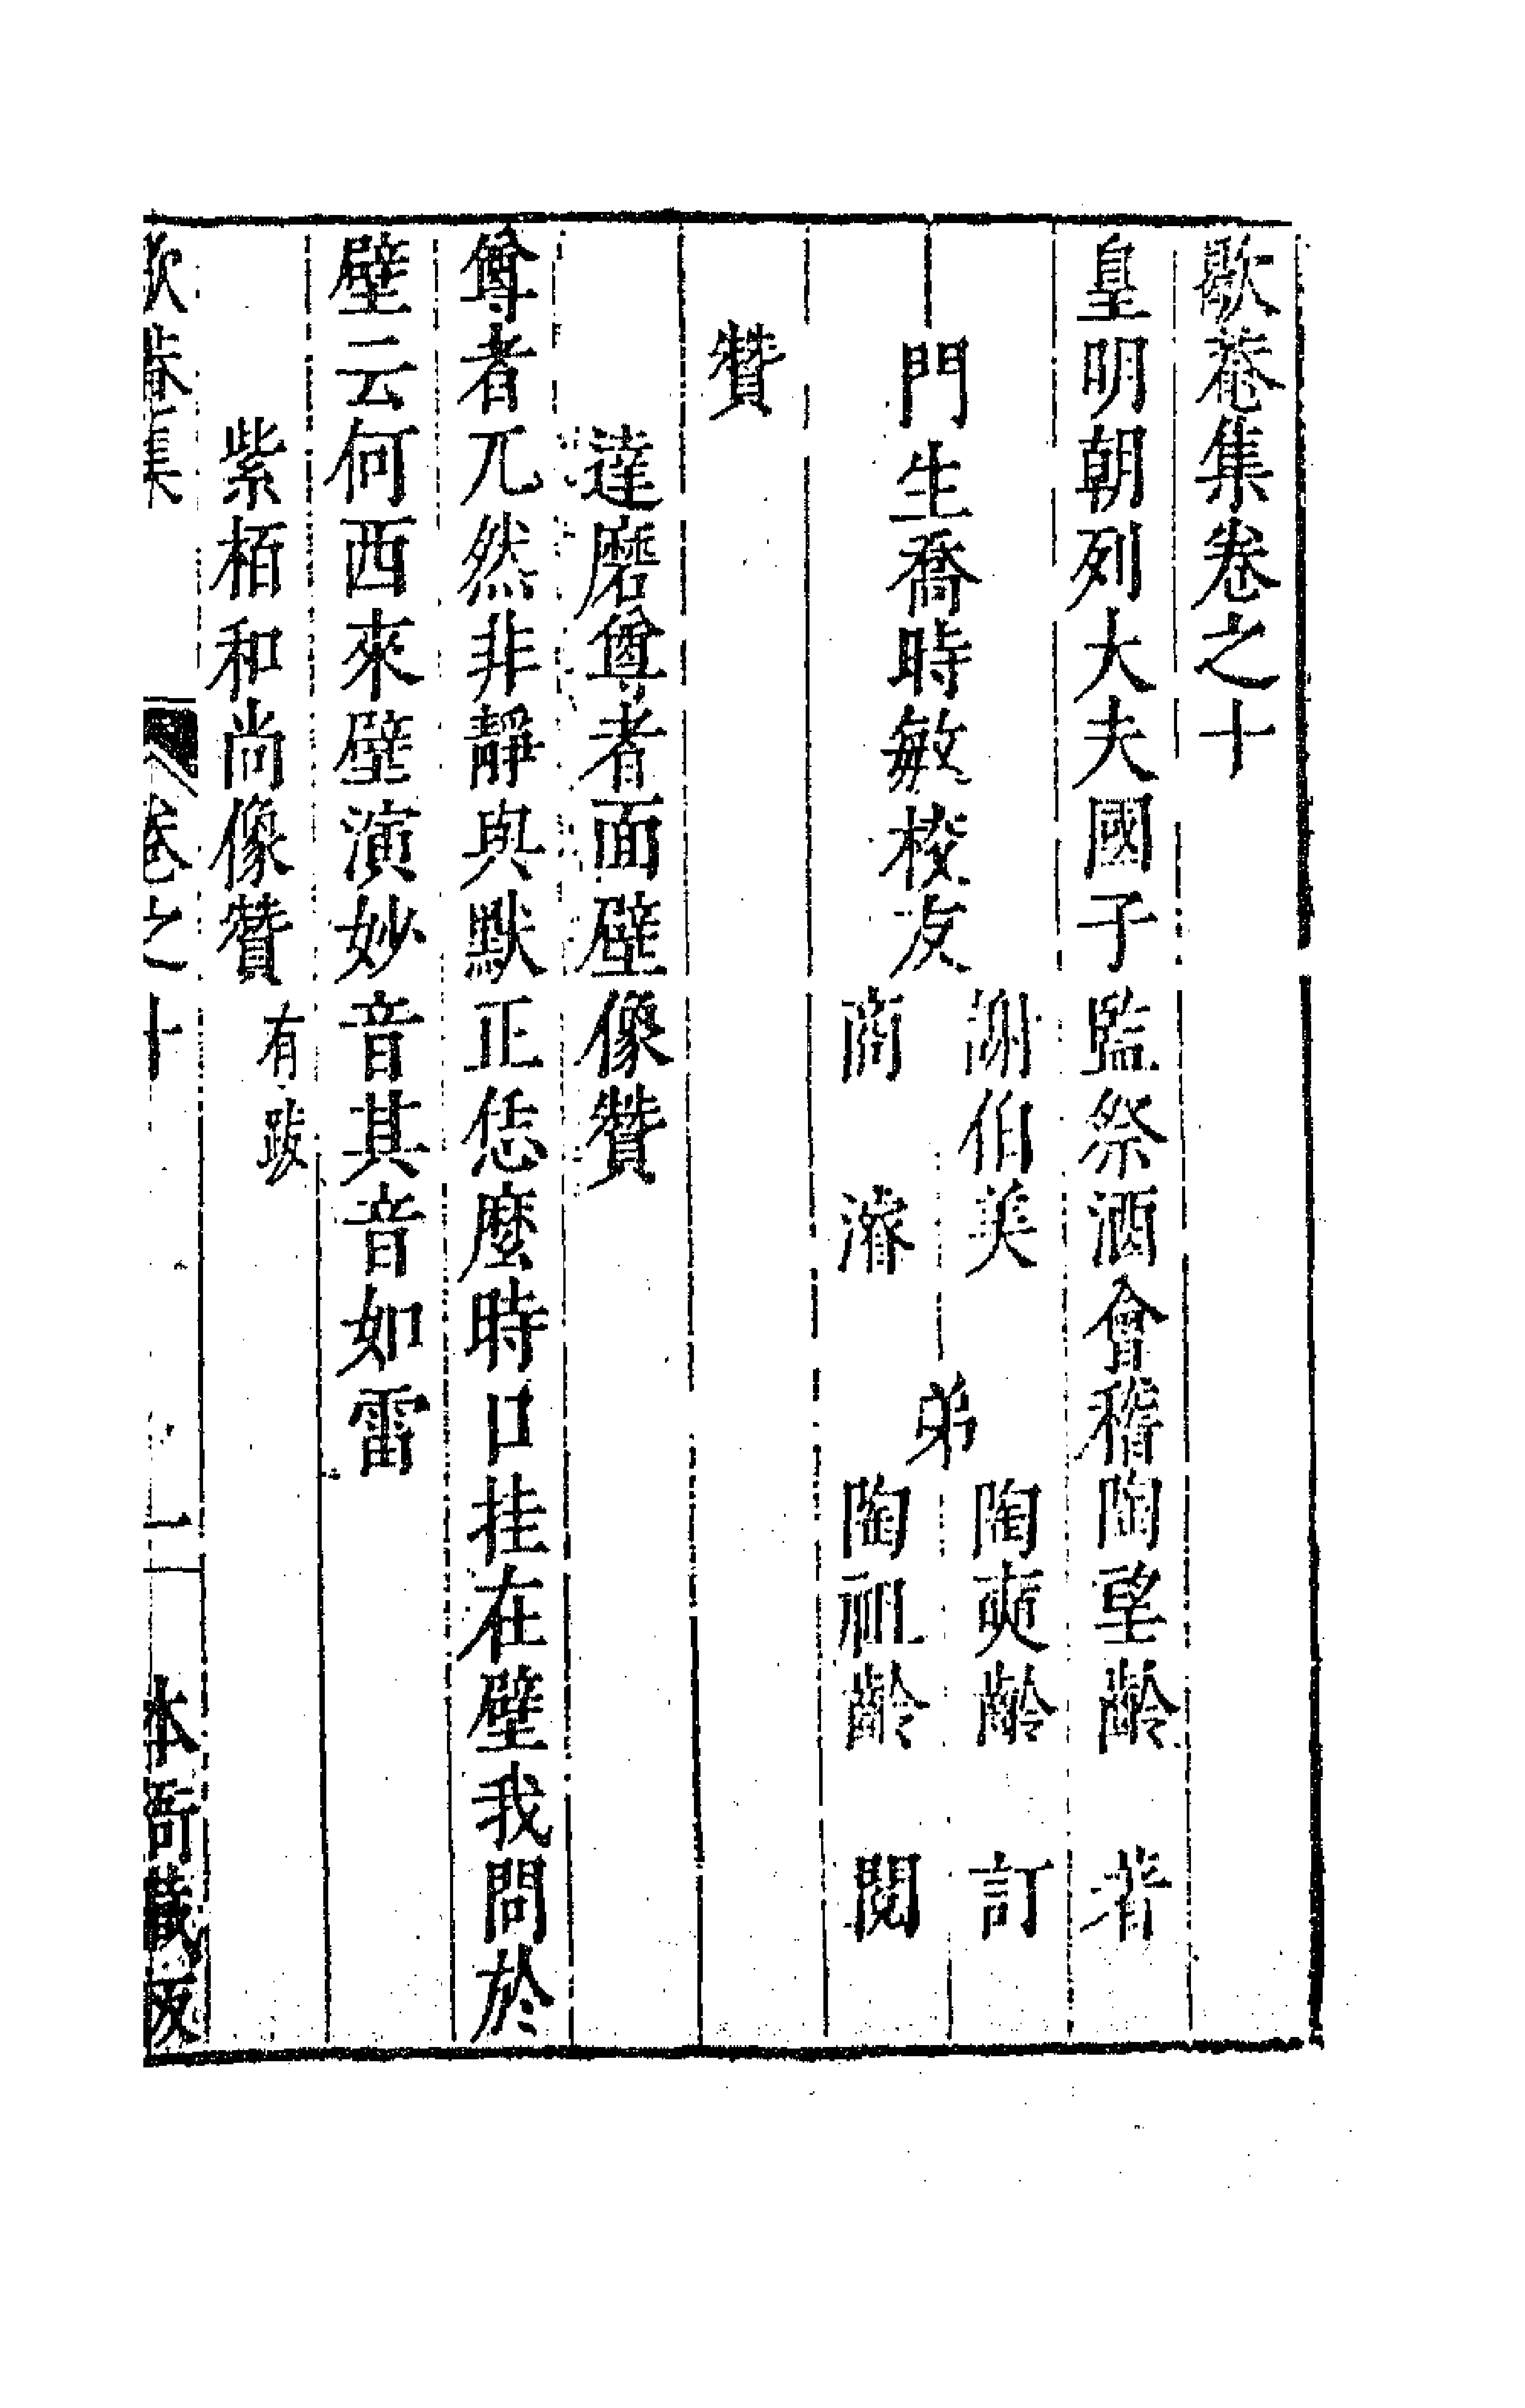 歇菴集卷之十
皇明朝列大夫國子監祭酒會稽陶望齡 著
門生喬時敏校友 謝伯美 弟 陶奭齡 訂
商 濬 陶祖齡 閱
贊
達磨尊者面壁像贊
尊者兀然非靜與默正恁麼時口挂在壁我問於
壁云何西來壁演妙音其音如雷
紫栢和尚像贊 有跋
歇菴集 卷之十 一 本衙藏版